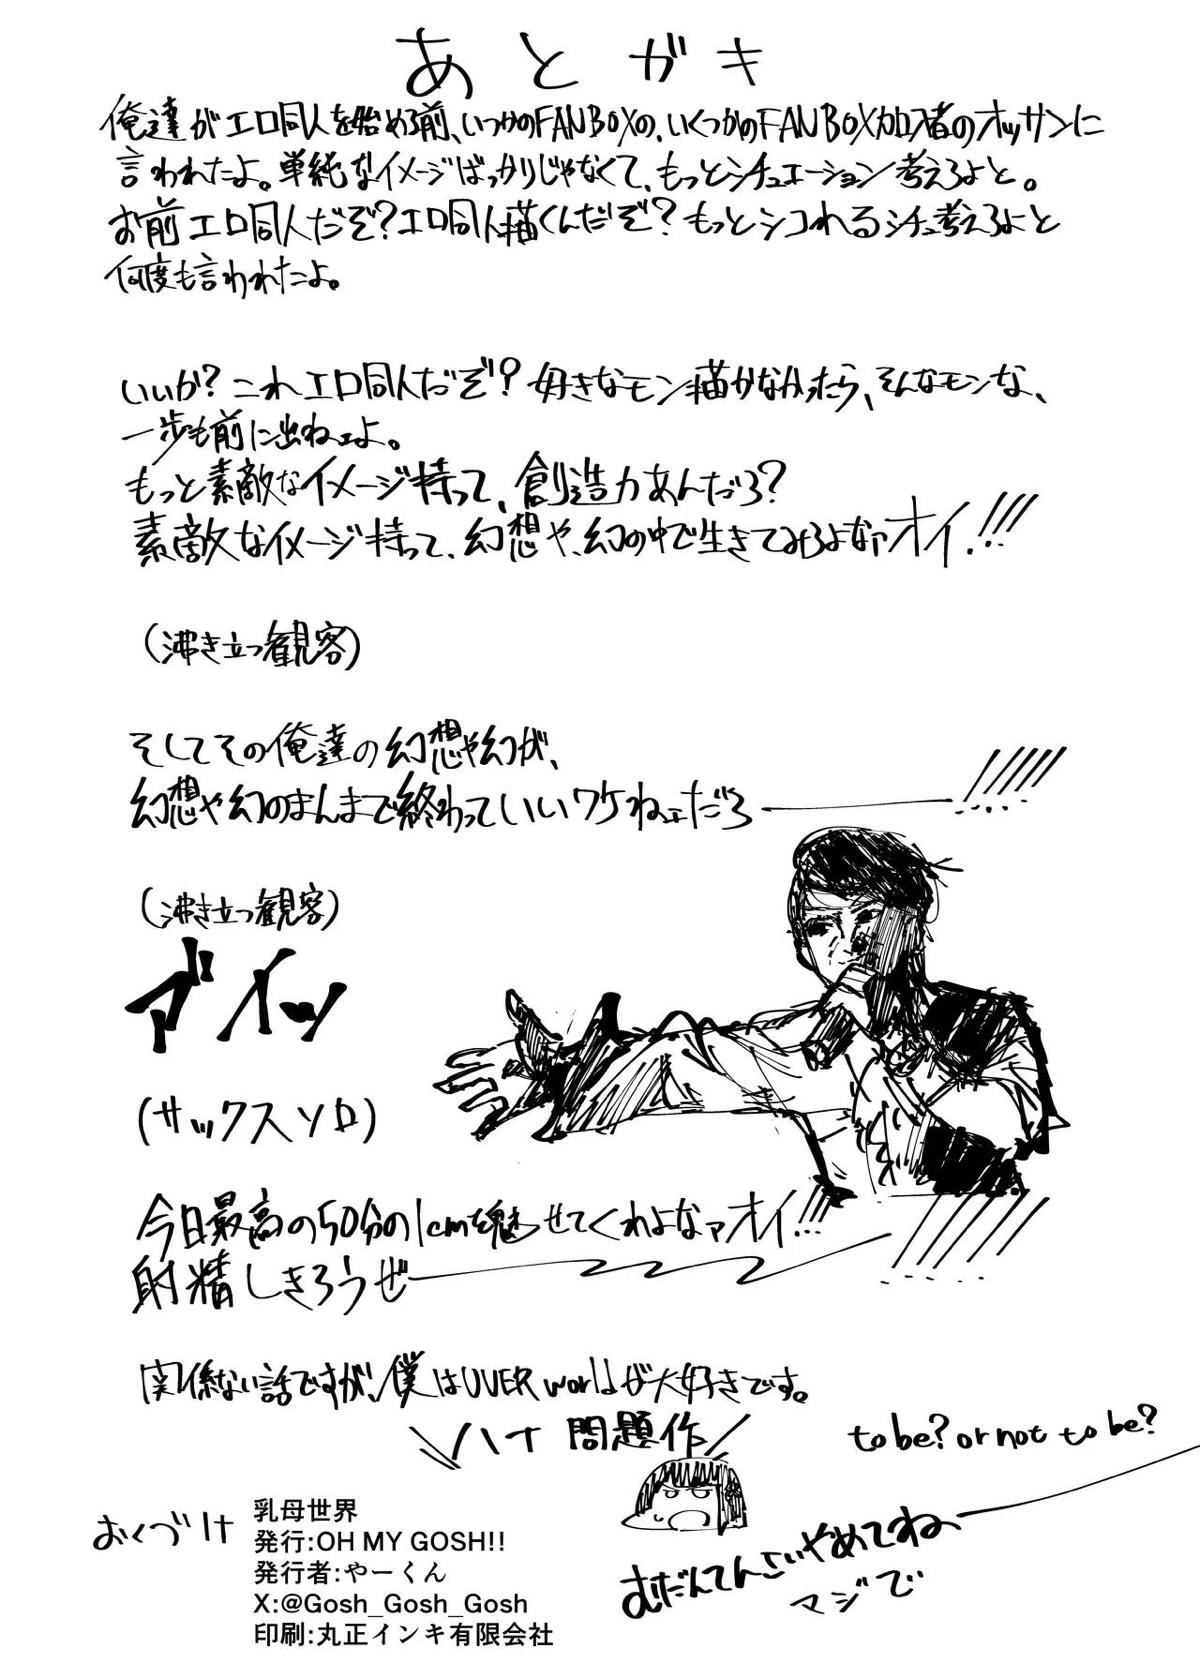 あとガキ
俺達がエロ同人を始める前、いつかのFANBOXの、いくつかのFANBOX加入者のオッサンに
言われたよ。単純なイメージばっかりじゃなくて、もっとシチュエーション考えろよと。
お前エロ同人だぞ?エロ同人描くんだぞ?もっとシコれるシチュ考えろよと
何度も言われたよ。
いいか?これエロ同人だぞ?好きなモン描かなかったら、そんなモンな、
一歩も前に出ねェよ。
もっと素敵なイメージ持って、創造力あんだろ?
素敵なイメージ持って、幻想や、幻の中で生きてみろよなァオイ!!!
(沸き立つ観客)
そしてその俺達の幻想や幻が、
幻想や幻のまんまで終わっていいワケねェだろ―――!!!!!
(沸き立つ観客)
アイッ
(サックスソロ)
今日最高の50分の1cmを魅せてくれよなァオイ!!!
射精しきろうぜ
関係ない話ですが、僕はUVERworldが大好きです。
\ハナ問題作/
to be? or not to be?
むだんてんさいやめてねー
マジで
おくづけ
乳母世界
発行:OH MY GOSH!!
発行者:やーくん
X:@Gosh_Gosh_Gosh
印刷:丸正インキ有限会社